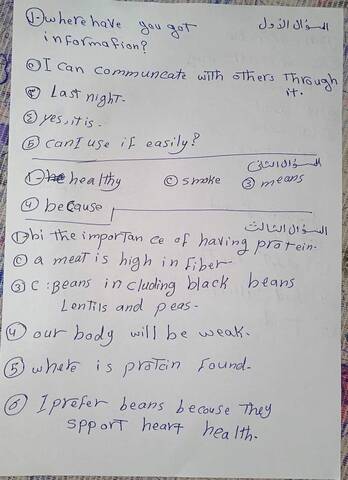 1- where have you got السؤال الأول
information?
② I can communcate with others Through
it.
③ Last night.
④ yes, it is.
⑤ can I use it easily?
السؤال الثانى
1- healthy ② smoke ③ means
④ because
السؤال الثالث
① - b: the importance of having protein.
② a meat is high in fiber
③ C: Beans in cluding black beans
Lentils and peas.
④ our body will be weak.
⑤ where is protein found.
⑥ I prefer beans because They
spport heart health.